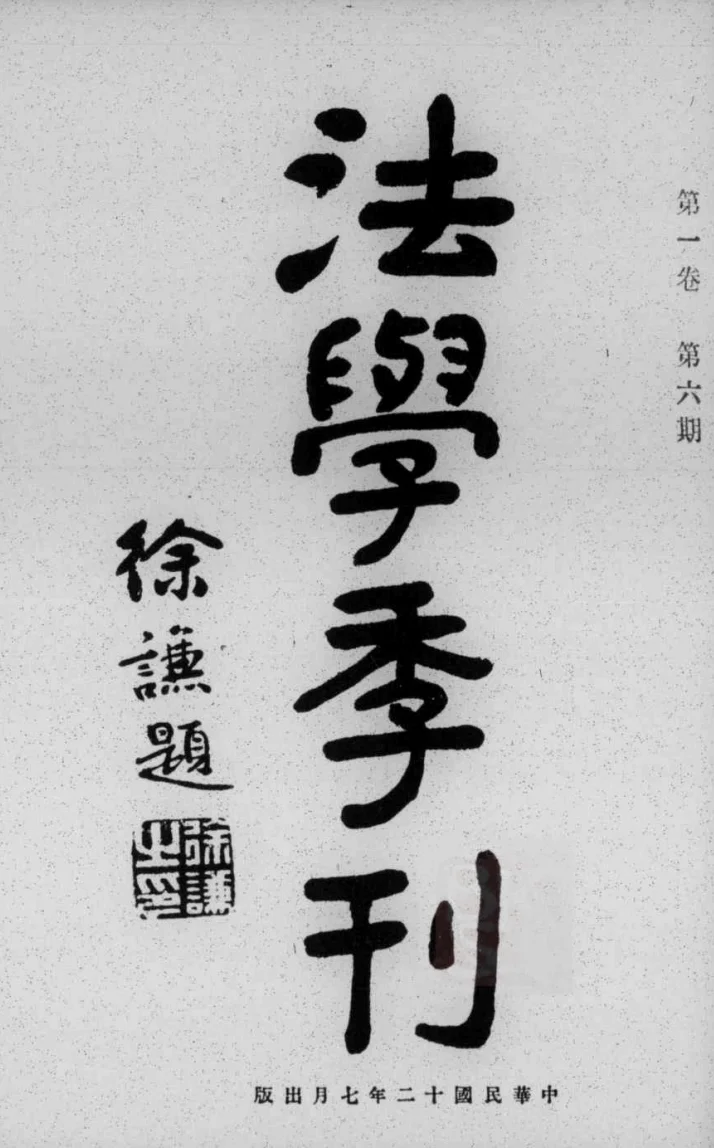 第一卷 第六期
法學季刊
徐謙題
徐謙之印
中華民國十二年七月出版